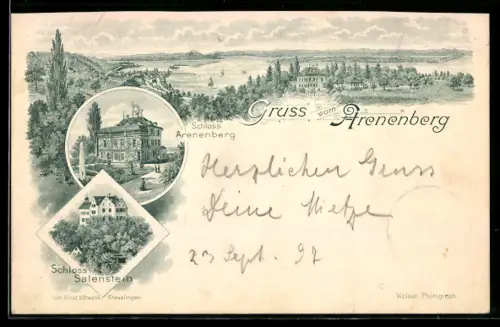 Gruss vom Arenenberg
Schloss
Arenenberg
Herzlichen Gruss
Deine Mietze
23 Sept. 97
Schloss
Salenstein
Lith. Ernst Kreuzlingen.
Wolser, Photograph